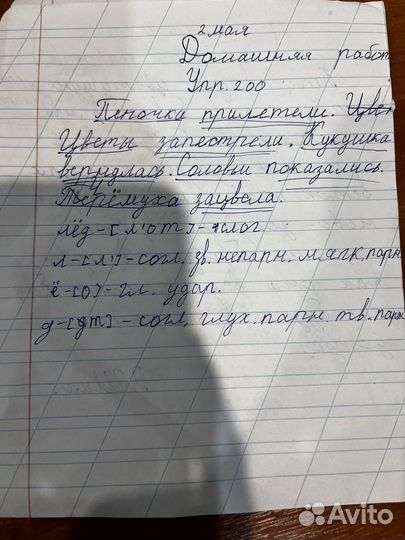 2 мая
Домашняя работ
Упр. 200
Пеночка прилетели. Цве
Цветы запестрели. Кукушка
вернулась. Соловьи показались.
Черёмуха зацвела.
лёд-[л'от]-1слог
л-[л']-согл. зв. непарн. мягк. парн
ё-[о]-гл. удар.
д-[т]-согл. глух. парн. тв. парн
Avito